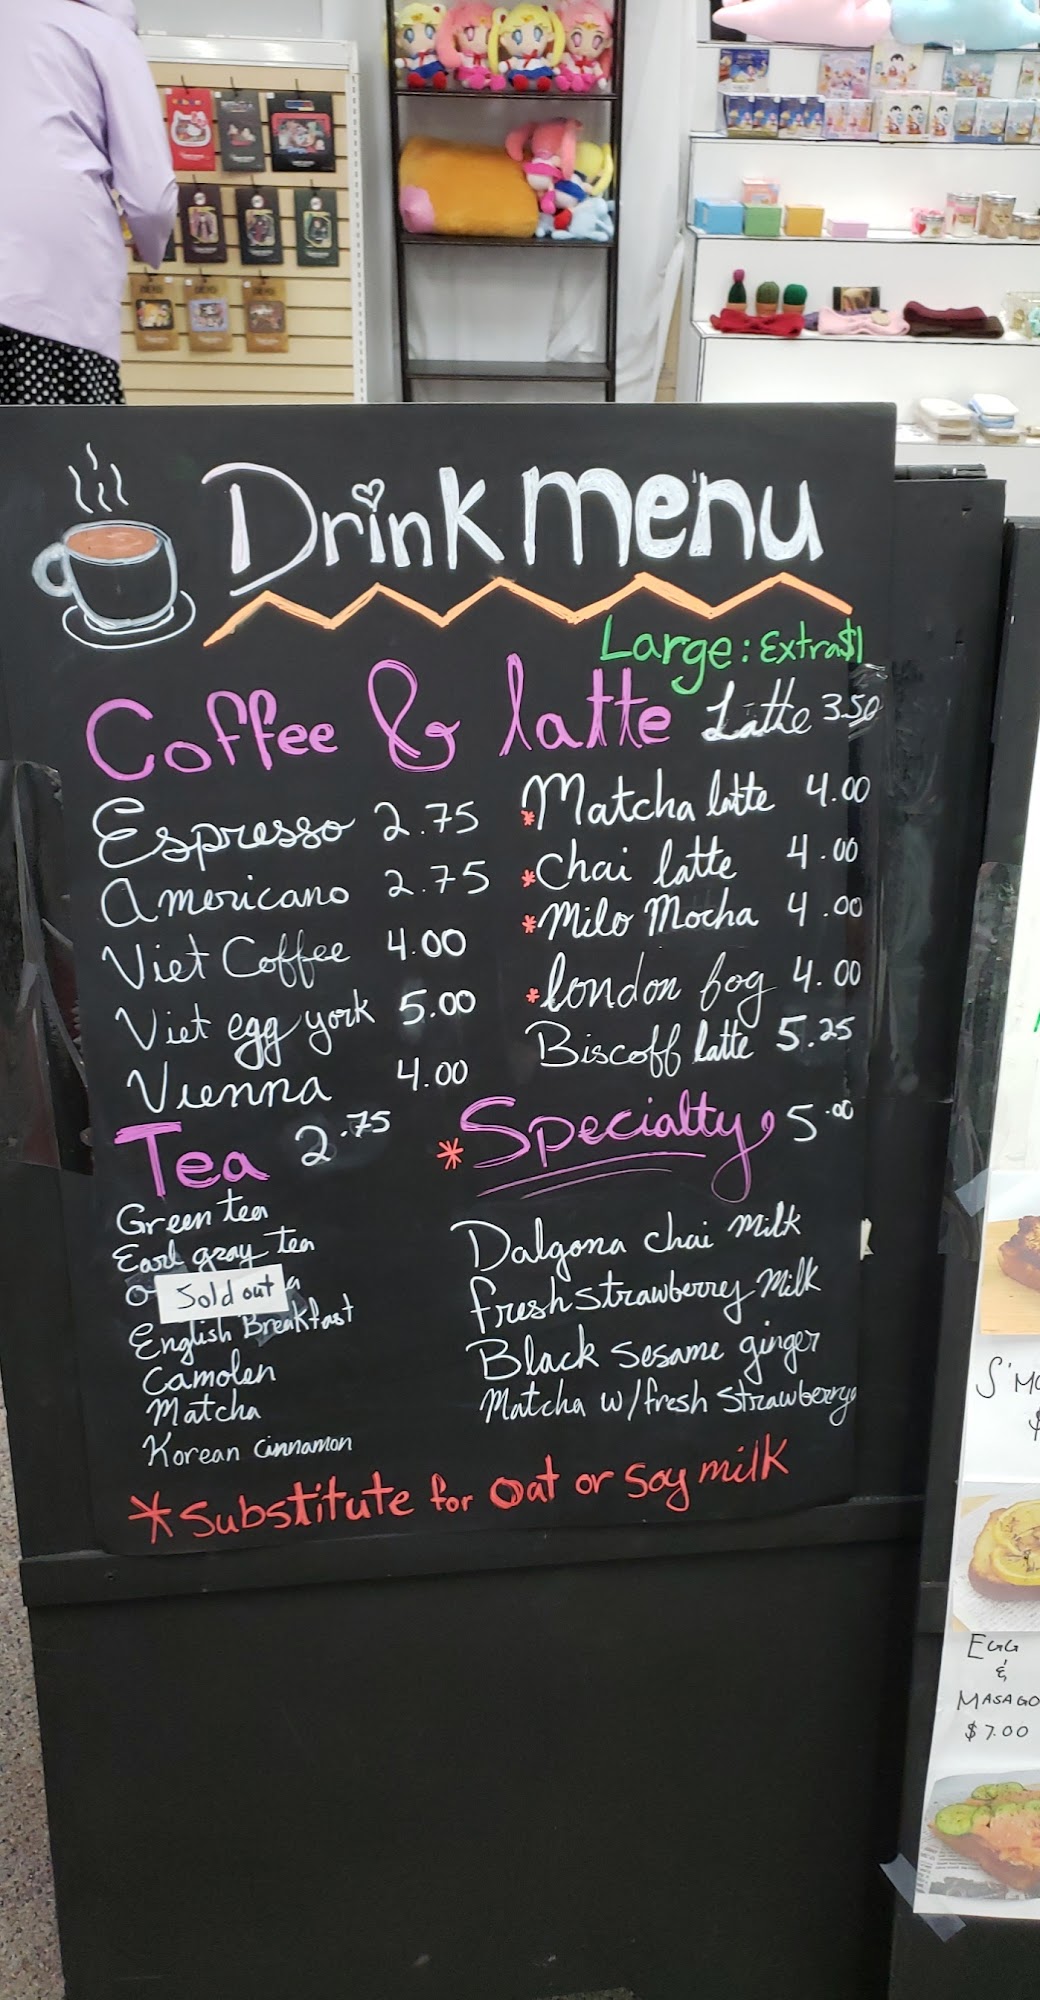 Drink menu
Large: Extra $1
Coffee & latte
Latte 3.50
Espresso 2.75
Americano 2.75
Viet Coffee 4.00
Viet egg york 5.00
Vienna 4.00
*Matcha latte 4.00
*Chai latte 4.00
*Milo Mocha 4.00
*london fog 4.00
Biscoff latte 5.25
Tea 2.75
Green tea
Earl gray tea
Sold out
English Breakfast
Camolen
Matcha
Korean cinnamon
*Specialty 5.00
Dalgona chai milk
fresh strawberry Milk
Black sesame ginger
Matcha w/fresh strawberry
*Substitute for oat or soy milk
EGG
&
MASAGO
$7.00